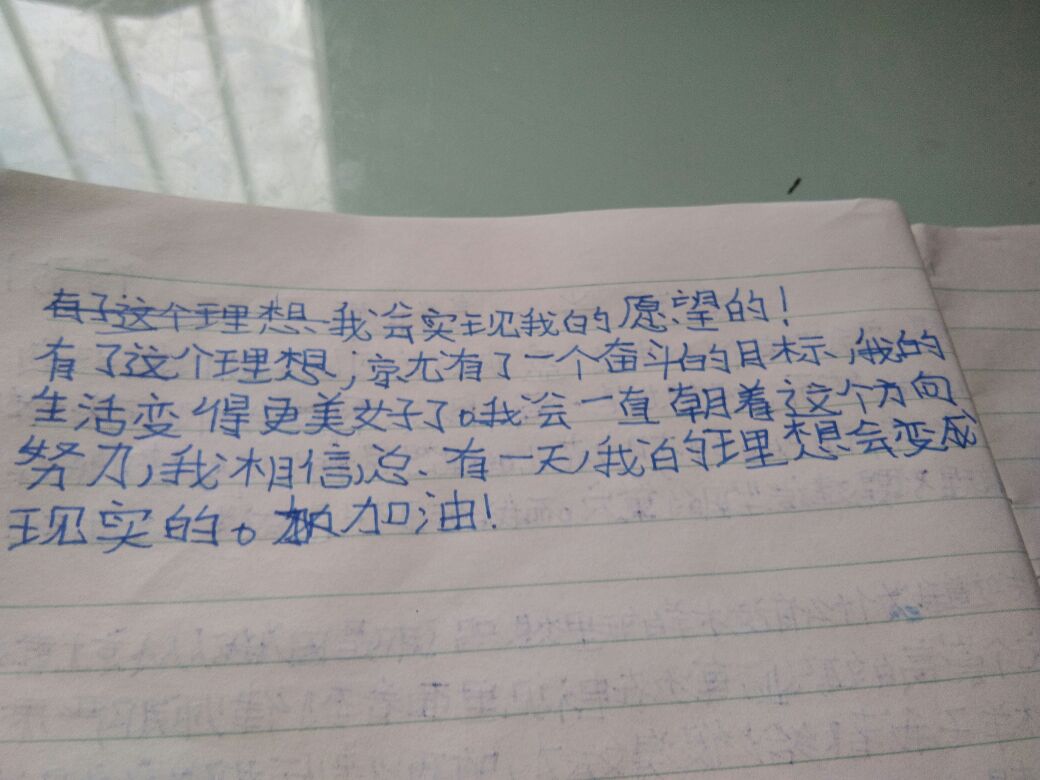 有了这个理想我会实现我的愿望的!
有了这个理想,就有了一个奋斗的目标,我的
生活变得更美好了。我会一直朝着这个方向
努力,我相信,总有一天,我的理想会变成
现实的。加油!